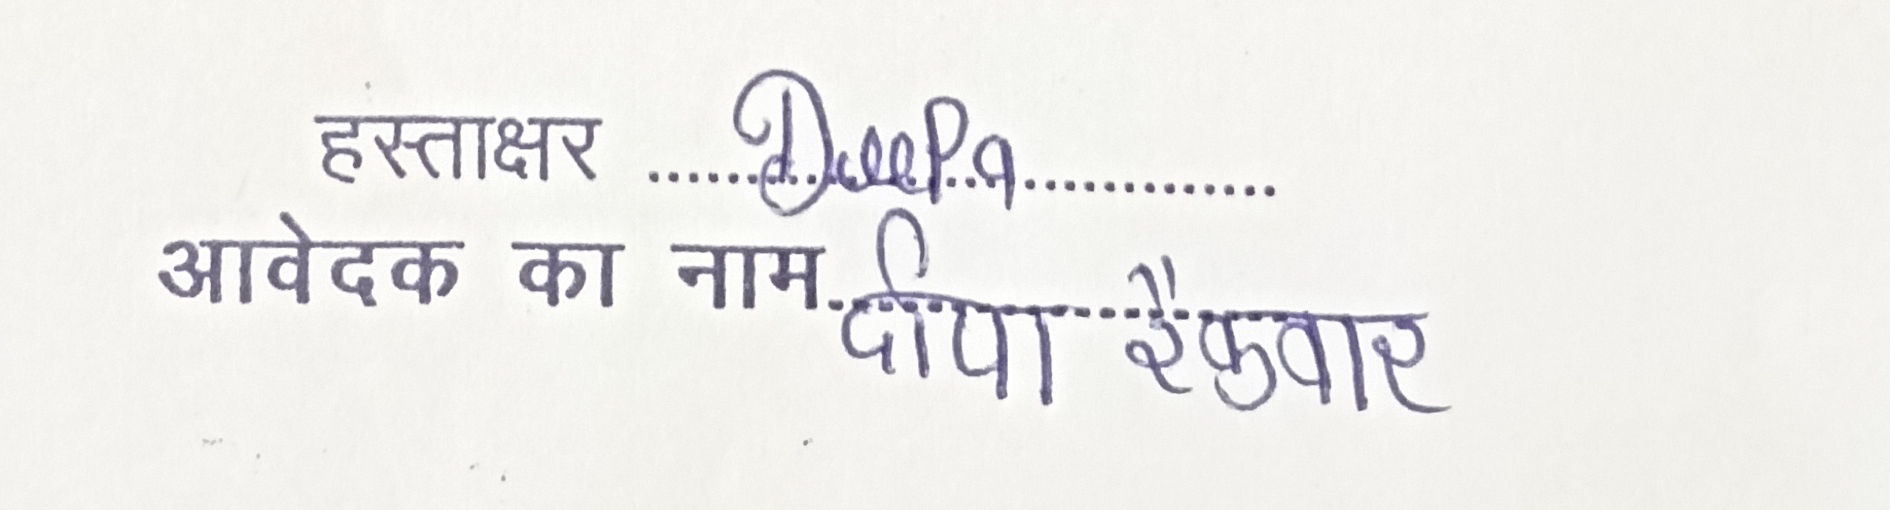 हस्ताक्षर ...... Deepa ..............
आवेदक का नाम ............ दीपा रैकवार